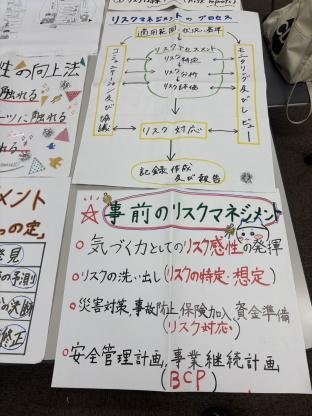 リスクマネジメントのプロセス
適用範囲 状況 基準
コミュニケーション及び協議
リスクアセスメント
リスク特定
リスク分析
リスク評価
モニタリング及びレビュー
リスク対応
記録作成
及び報告
性の向上法
に触れる
ーツに触れる
れる
メント
つの定」
発見
の予測
の決断
修正
事前のリスクマネジメント
気づく力としてのリスク感性の発揮
リスクの洗い出し(リスクの特定・想定)
災害対策、事故防止、保険加入、資金準備
(リスク対応)
安全管理計画、事業継続計画
(BCP)